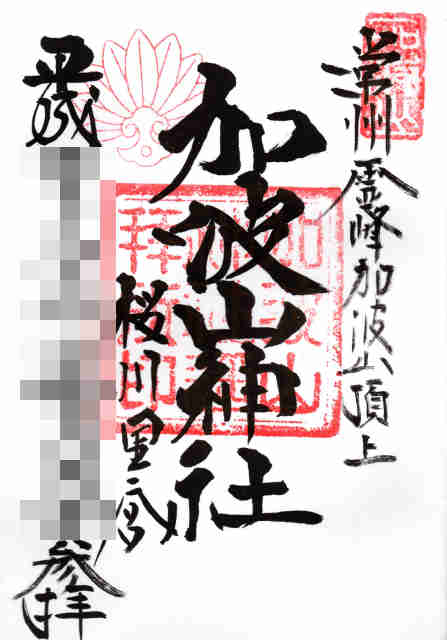 常州霊峰加波山頂上
加波山神社
桜川里宮
平成
参拝